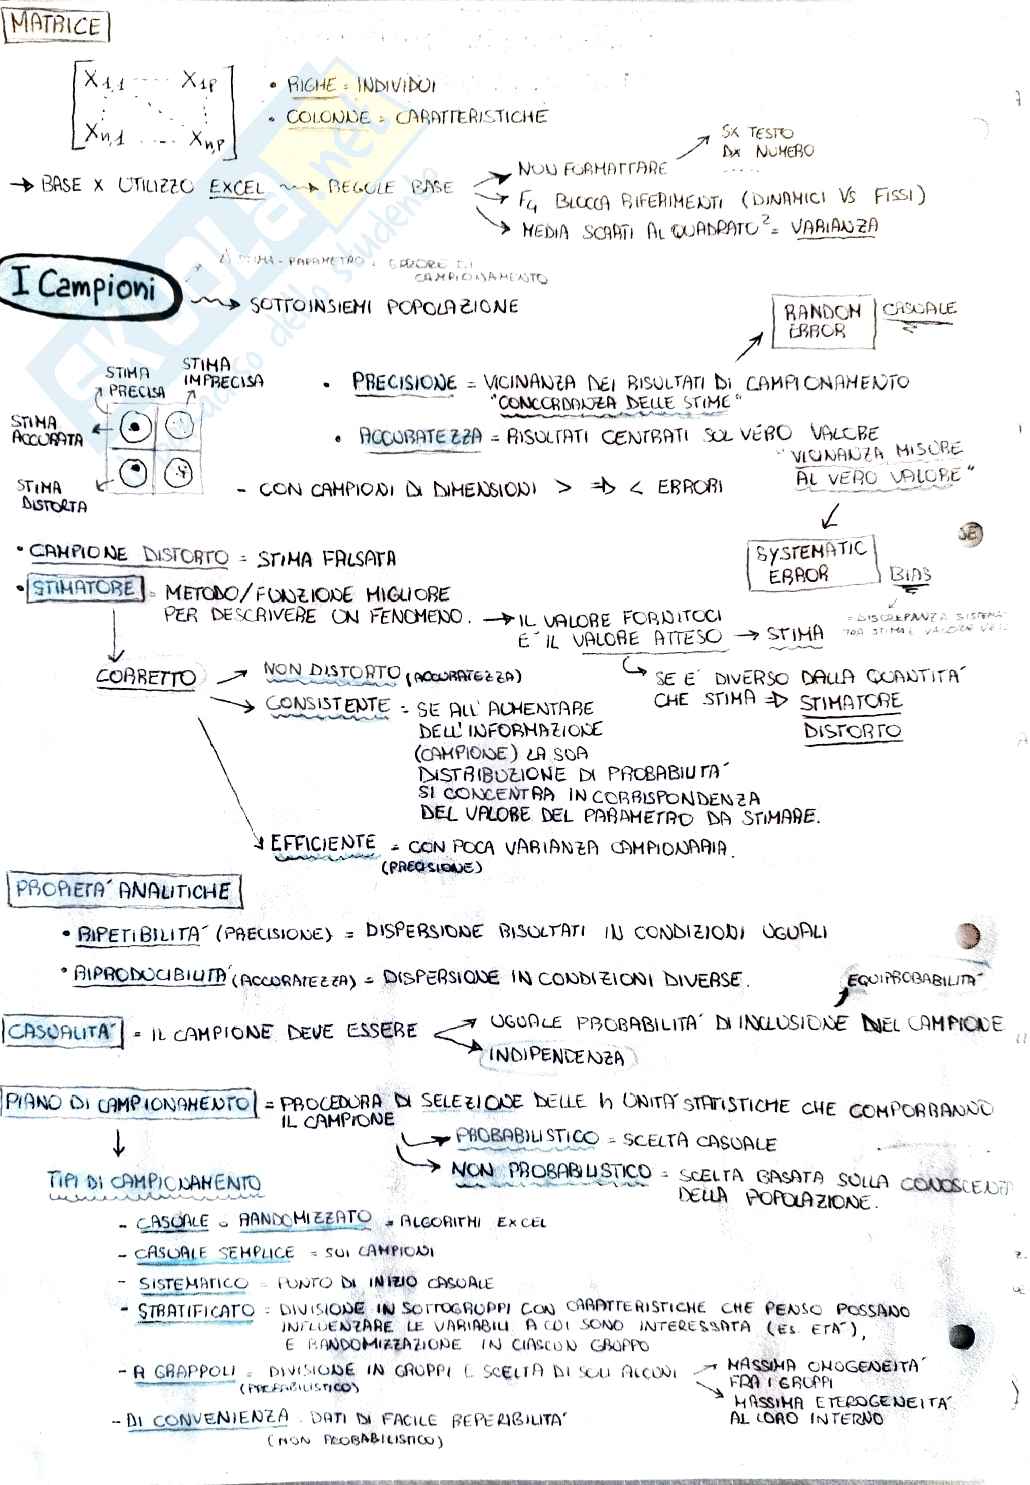 MATRICE
X1,1 ..... X1P
Xn,1 ..... Xn,P
• RIGHE = INDIVIDUI
• COLONNE = CARATTERISTICHE
→ BASE X UTILIZZO EXCEL → REGOLE BASE
NON FORMATTARE
SX TESTO
DX NUMERO
.....
F4 BLOCCA RIFERIMENTI (DINAMICI VS FISSI)
MEDIA SCARTI AL QUADRATO² = VARIANZA
I Campioni
STIMA - PARAMETRO = ERRORE DI
CAMPIONAMENTO
→ SOTTOINSIEMI POPOLAZIONE
RANDOM
ERROR
CASUALE
STIMA
PRECISA
STIMA
IMPRECISA
STIMA
ACCURATA
STIMA
DISTORTA
• PRECISIONE = VICINANZA DEI RISULTATI DI CAMPIONAMENTO
"CONCORDANZA DELLE STIME"
• ACCURATEZZA = RISULTATI CENTRATI SUL VERO VALORE
"VICINANZA MISURE
AL VERO VALORE"
- CON CAMPIONI DI DIMENSIONI > ⇒ < ERRORI
SYSTEMATIC
ERROR
BIAS
= DISCREPANZA SISTEM
TRA STIMA E VALORE
• CAMPIONE DISTORTO = STIMA FALSATA
• STIMATORE = METODO/FUNZIONE MIGLIORE
PER DESCRIVERE UN FENOMENO. → IL VALORE FORNITOCI
E' IL VALORE ATTESO → STIMA
SE E' DIVERSO DALLA QUANTITA'
CHE STIMA ⇒ STIMATORE
DISTORTO
CORRETTO
NON DISTORTO (ACCURATEZZA)
CONSISTENTE = SE ALL'AUMENTARE
DELL'INFORMAZIONE
(CAMPIONE) LA SUA
DISTRIBUZIONE DI PROBABILITA'
SI CONCENTRA IN CORRISPONDENZA
DEL VALORE DEL PARAMETRO DA STIMARE.
EFFICIENTE = CON POCA VARIANZA CAMPIONARIA.
(PRECISIONE)
PROPIETA' ANALITICHE
• RIPETIBILITA' (PRECISIONE) = DISPERSIONE RISULTATI IN CONDIZIONI UGUALI
• RIPRODUCIBILITA' (ACCURATEZZA) = DISPERSIONE IN CONDIZIONI DIVERSE.
EQUIPROBABILITA'
CASUALITA' = IL CAMPIONE DEVE ESSERE
UGUALE PROBABILITA' DI INCLUSIONE NEL CAMPIONE
INDIPENDENZA
PIANO DI CAMPIONAMENTO = PROCEDURA DI SELEZIONE DELLE n UNITA' STATISTICHE CHE COMPORRANNO
IL CAMPIONE
PROBABILISTICO = SCELTA CASUALE
NON PROBABILISTICO = SCELTA BASATA SULLA CONOSCENZ
DELLA POPOLAZIONE.
TIPI DI CAMPIONAMENTO
- CASUALE o RANDOMIZZATO = ALGORITMI EXCEL
- CASUALE SEMPLICE = SUI CAMPIONI
- SISTEMATICO = PUNTO DI INIZIO CASUALE
- STRATIFICATO = DIVISIONE IN SOTTOGRUPPI CON CARATTERISTICHE CHE PENSO POSSANO
INFLUENZARE LE VARIABILI A CUI SONO INTERESSATA (ES. ETA'),
E RANDOMIZZAZIONE IN CIASCUN GRUPPO
- A GRAPPOLI = DIVISIONE IN GRUPPI E SCELTA DI SOLI ALCUNI
(PROBABILISTICO)
MASSIMA OMOGENEITA'
FRA I GRUPPI
MASSIMA ETEROGENEITA'
AL LORO INTERNO
- DI CONVENIENZA = DATI DI FACILE REPERIBILITA'
(NON PROBABILISTICO)
SKUOLA.net